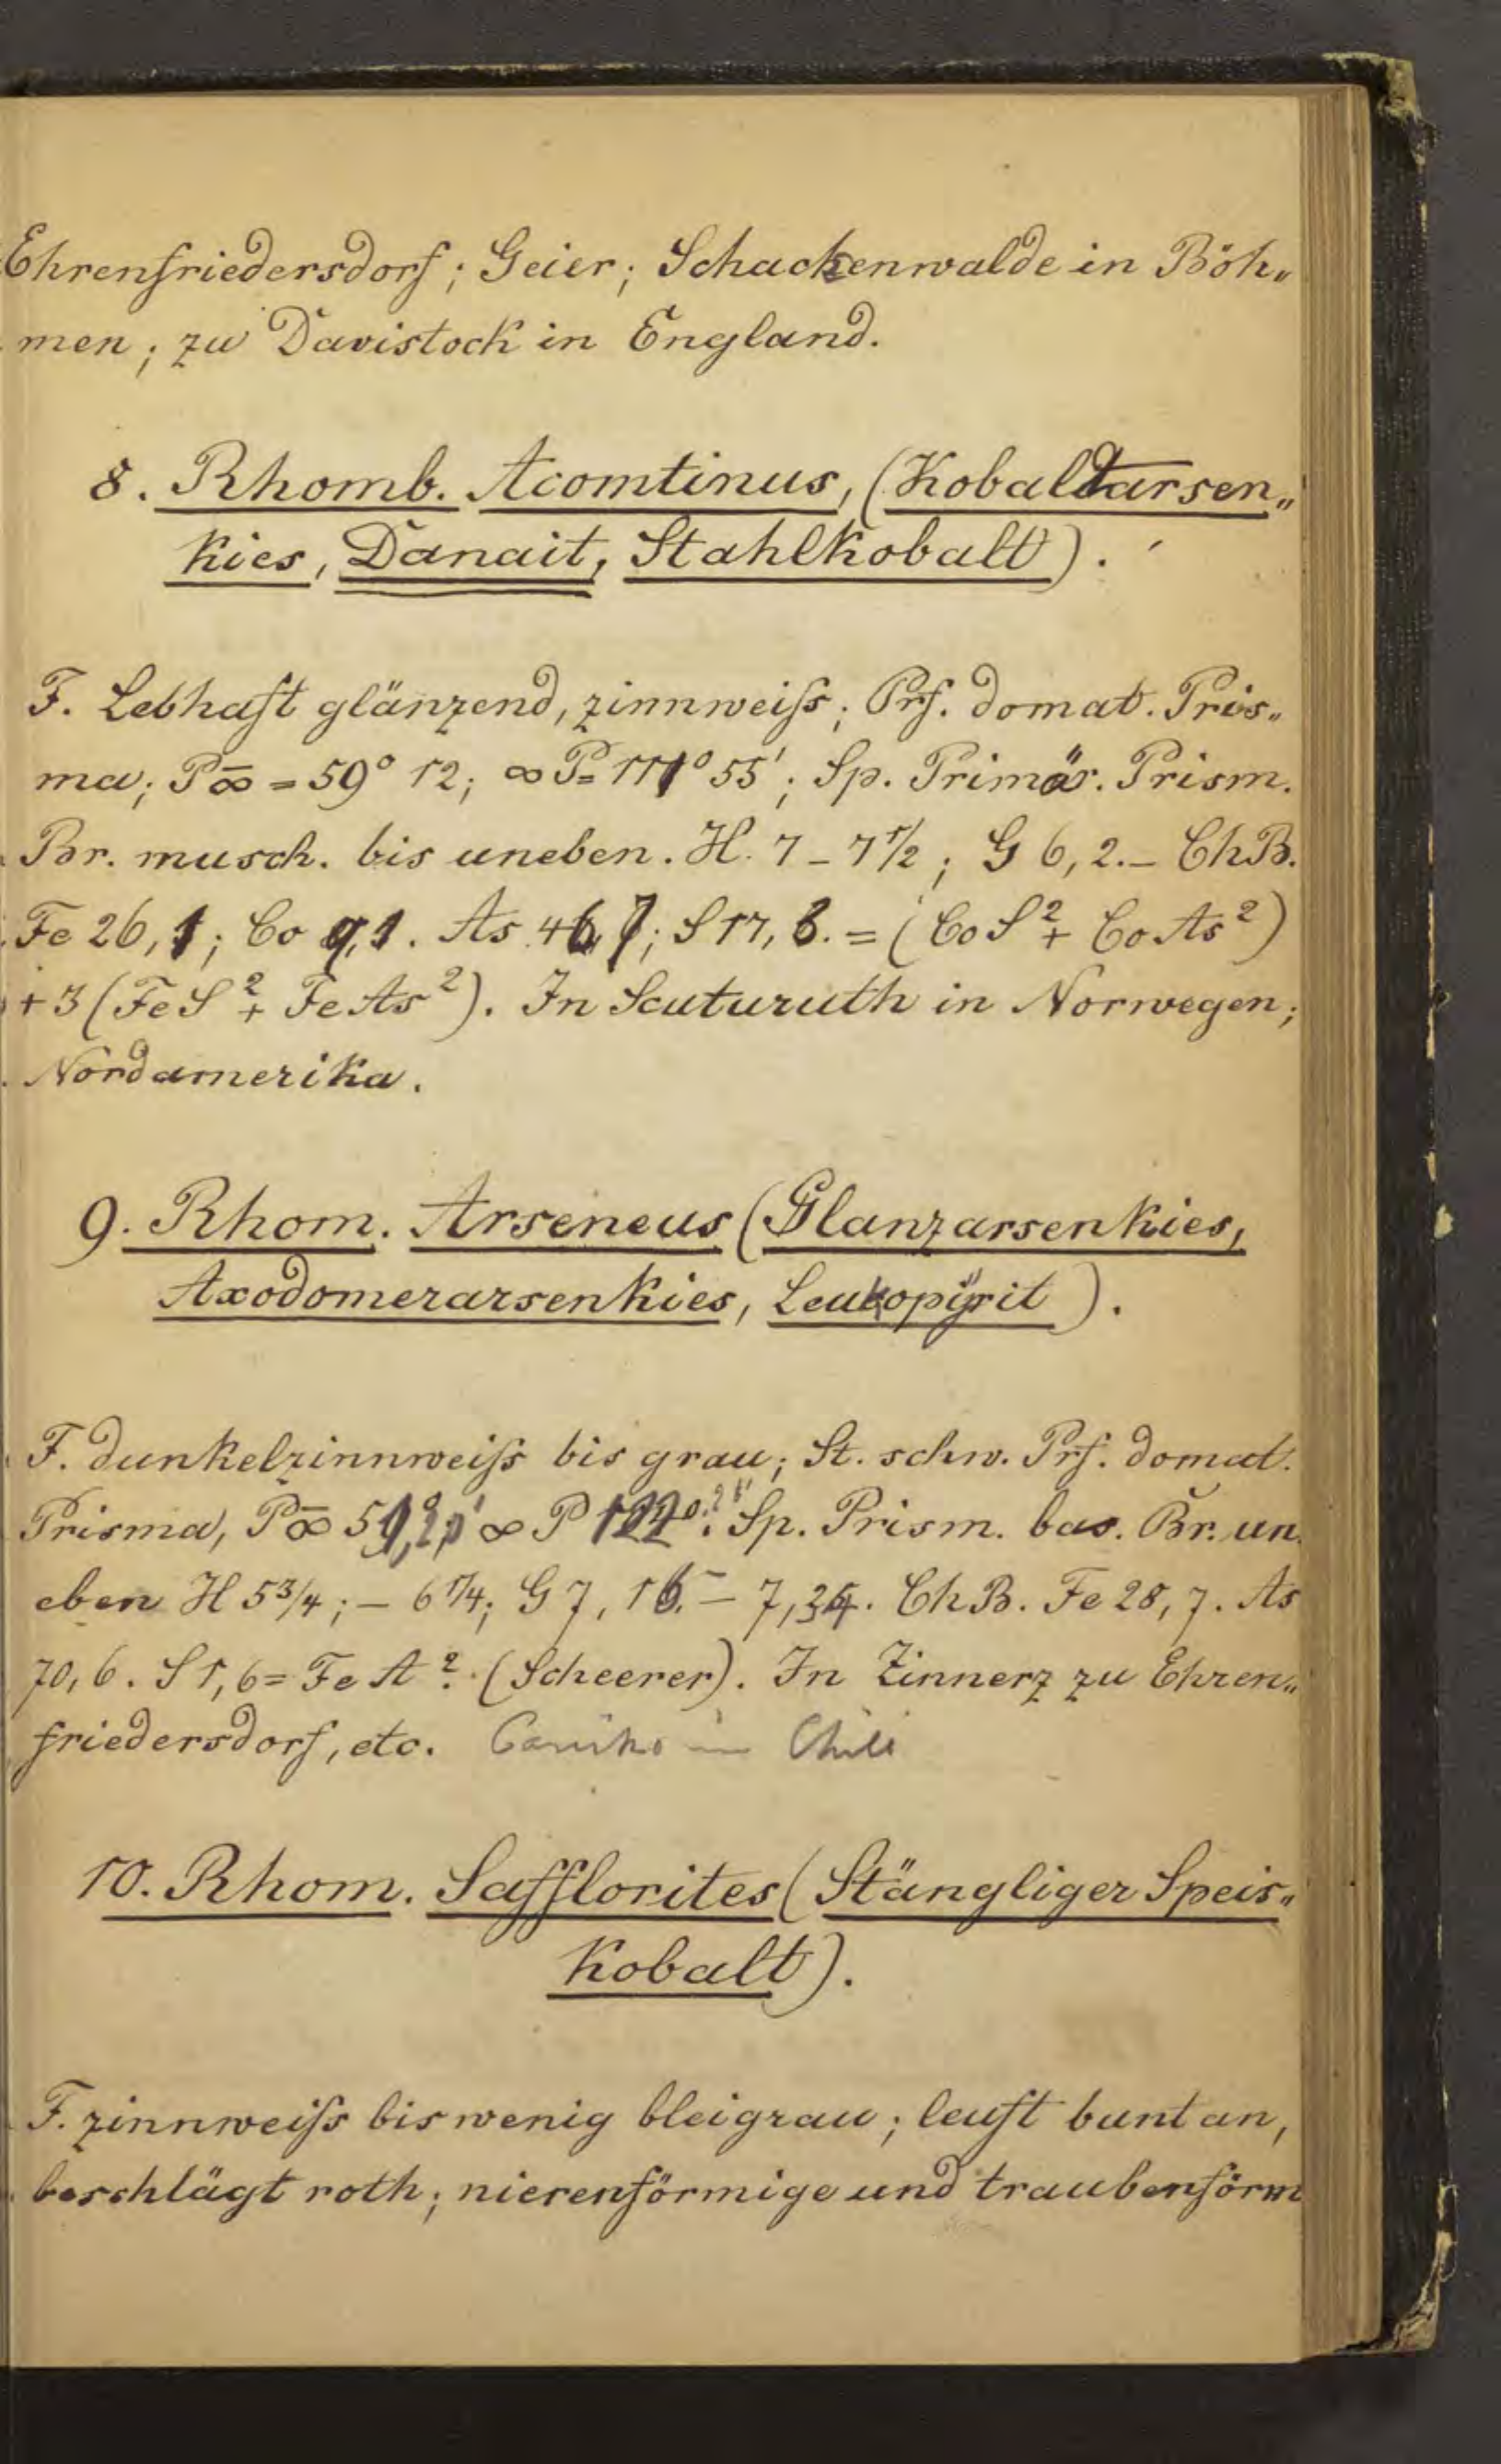 Ehrenfriedersdorf; Geier; Schackenwalde in Böh„
men; zu Davistock in England.
8. Rhomb. Acomtinus, (Kobaltarsen„
kies, Danait, Stahlkobalt).
F. Lebhaft glänzend, zinnweiſs; Prf. domat. Pris„
ma; P∞̄ = 59° 12; ∞P= 111° 55'; Sp. Primär. Prism.
Br. musch. bis uneben. H. 7 – 7 1/2; G 6,2. – ChB.
Fe 26,1; Co 9,1. As 46,7; S 17,8. = (CoS² + CoAs²)
+3 (FeS² + FeAs²). In Scuturuth in Norwegen;
Nordamerika.
9. Rhom. Arseneus (Glanzarsenkies,
Axodomerarsenkies, Leukopÿrit).
F. dunkelzinnweiſs bis grau; St. schw. Prf. domat.
Prisma, P∞̄ ∞P Sp. Prism. bas. Br. un
eben H 5 3/4; – 6 1/4; G 7, – 7, ChB. Fe 28,7. As
70,6. S 1,6 = FeA². (Scheerer). In Zinnerz zu Ehren„
friedersdorf, etc. in Chili
10. Rhom. Safflorites (Stängliger Speis„
kobalt).
F. zinnweiſs bis wenig bleigrau; leuft bunt an,
beschlägt roth; nierenförmige und traubenförm